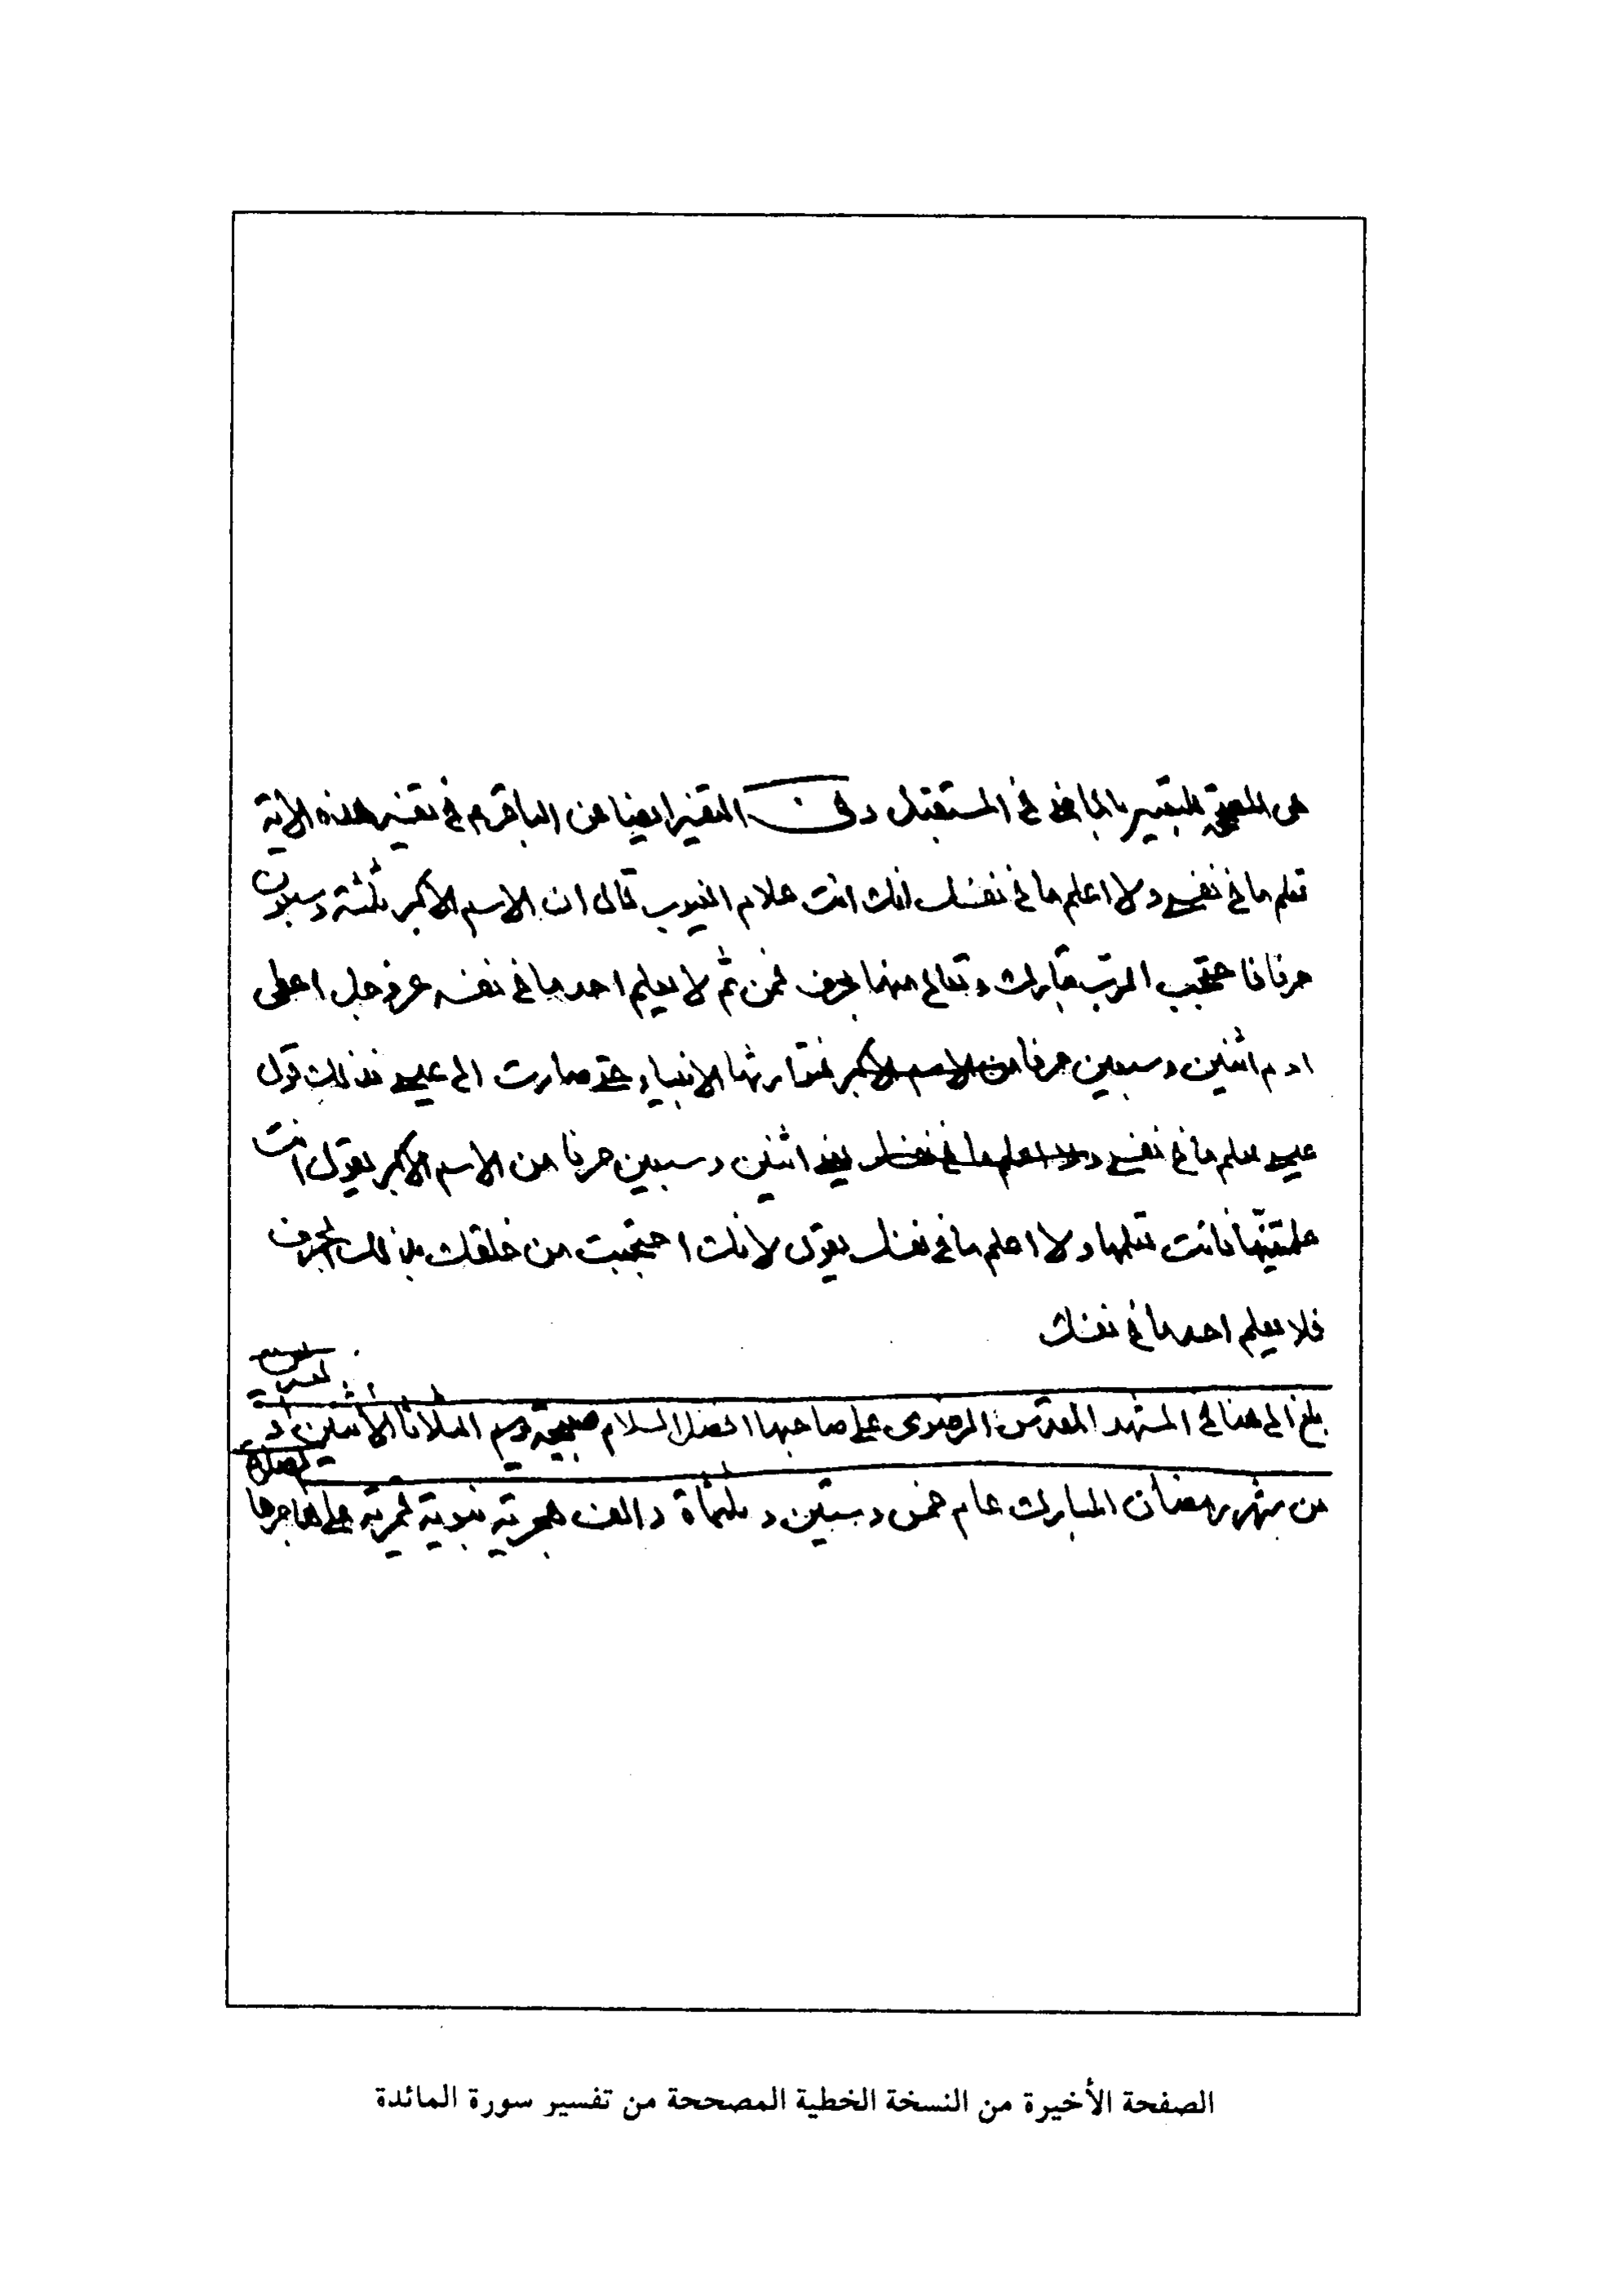 هى المصحح للتعبير بالماضى فى المستقبل وفى التفسير ايضا عن الباقرم فى تفسير هذه الاية
تعلم ما فى نفسى ولا اعلم ما فى نفسك انك انت علام الغيوب قال ان الاسم الاكبر ثلثة وسبعون
حرفا فاحتجب الرب تبارك وتعالى منها بحرف فمن ثم لا يعلم احد ما فى نفسه عز وجل اعطى
ادم اثنين وسبعين حرفا من الاسم الاكبر فتوارثها الانبياء حتى صارت الى عيسى فذلك قول
عيسى تعلم ما فى نفسى ولا اعلم ما فى نفسك يعنى اثنين وسبعين حرفا من الاسم الاكبر يقول انت
علمتنيها فانت تعلمها ولا اعلم ما فى نفسك يقول لانك احتجبت من خلقك بذلك الحرف
فلا يعلم احد ما فى نفسك
بلغ الى هنا فى المشهد المقدس الرضوى على صاحبها افضل السلام صبيحة يوم الثلاثا
من شهر رمضان المبارك عام خمس وستين وثلثماة والف هجرية نبوية قمرية على هاجرها
الصفحة الأخيرة من النسخة الخطية المصححة من تفسير سورة المائدة